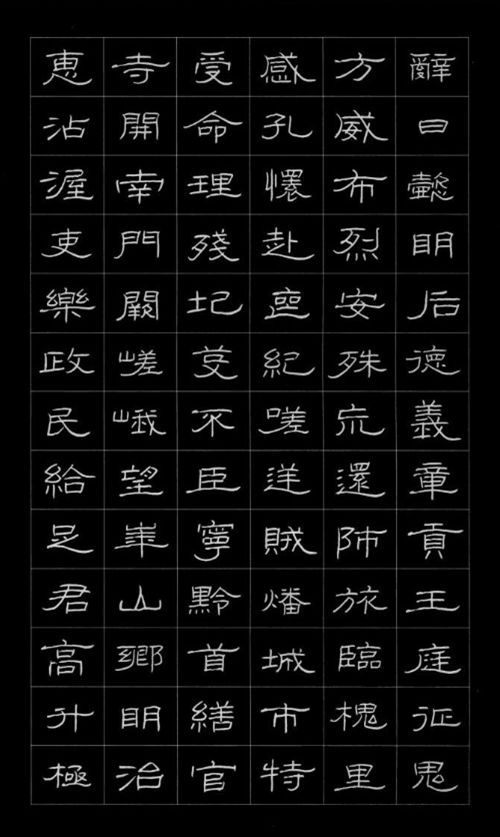 辭曰懿明后德義章貢王庭征鬼
方威布烈安殊荒還師旅臨槐里
感孔懷赴喪紀嗟逆賊燔城市特
受命理殘圮芟不臣寧黔首繕官
寺開南門闕嵯峨望華山鄉明治
惠沾渥吏樂政民給足君高升極